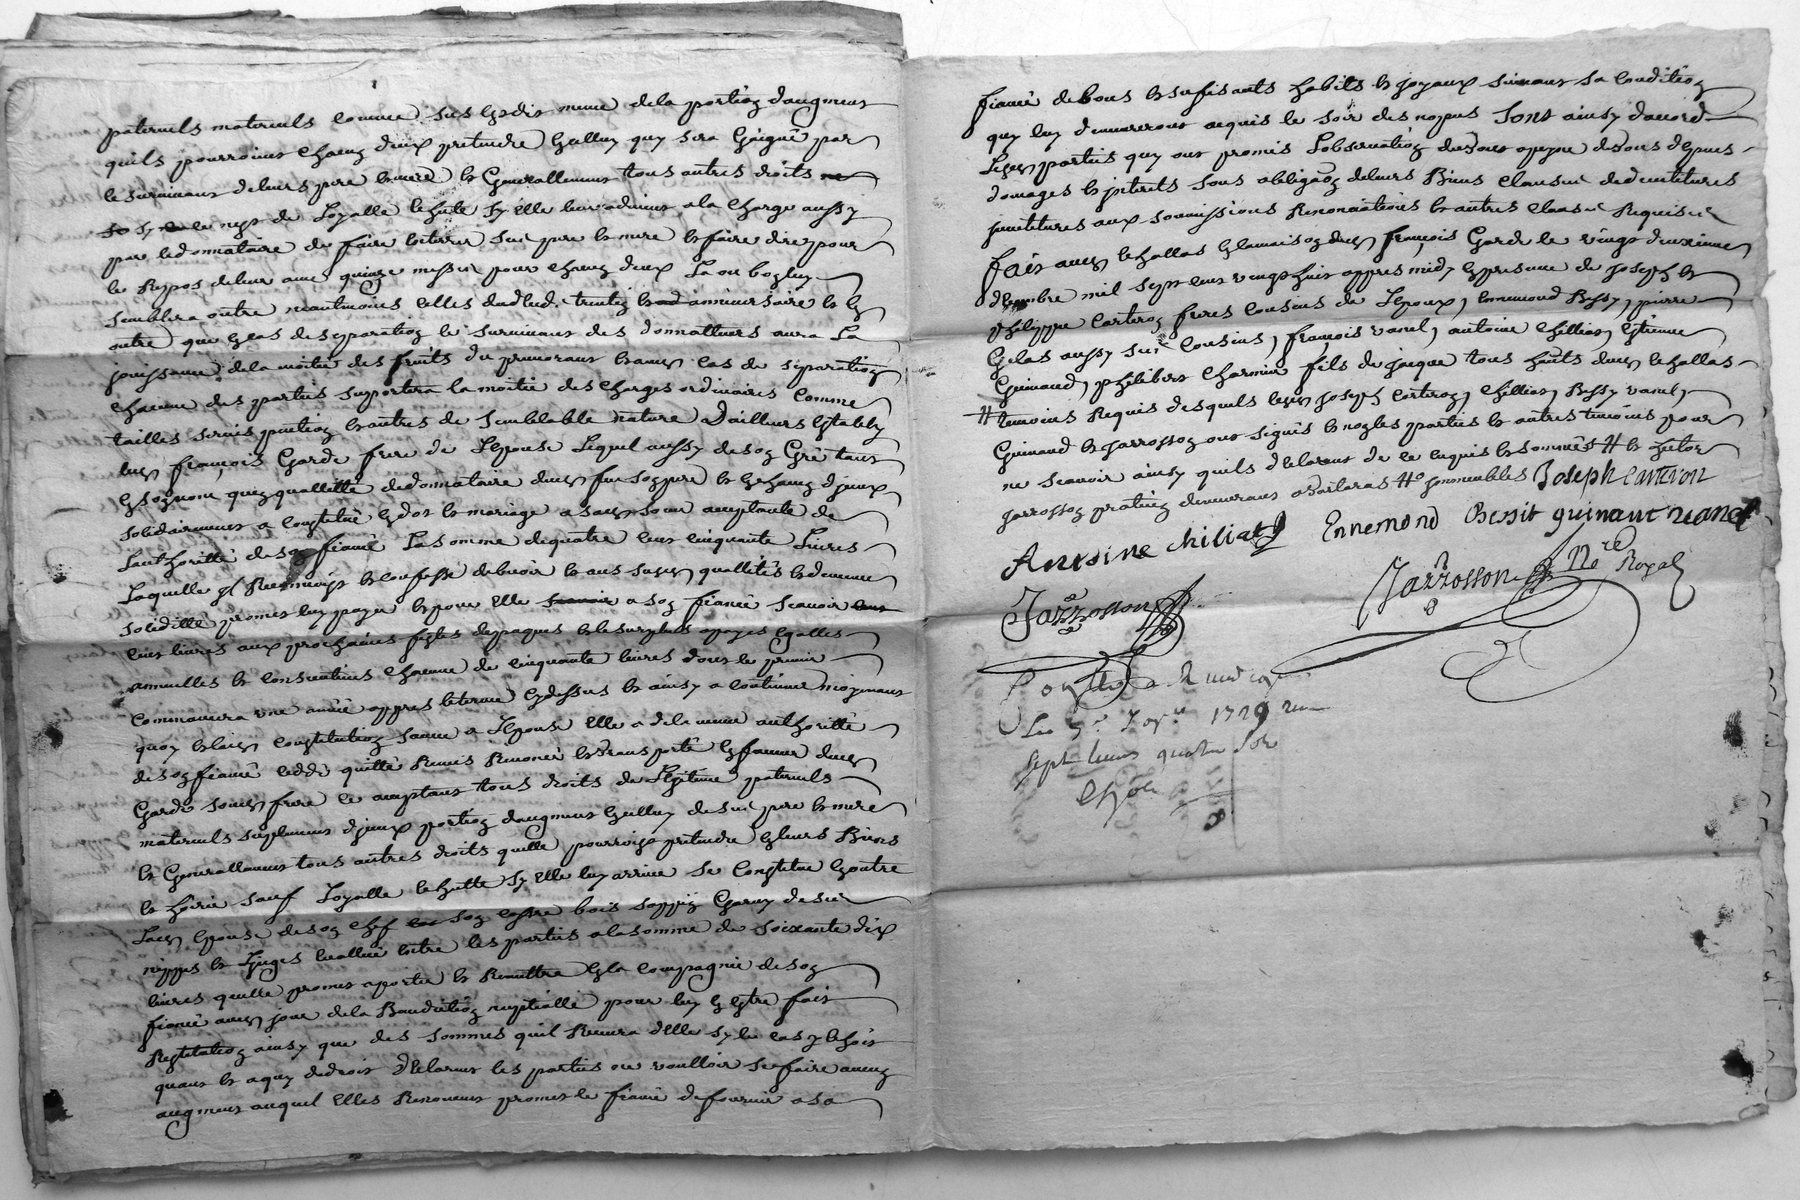 paternels maternels comme sus est dit meme de la portion daugment
quils pourroint chacun deux pretendre en celluy quy sera Gaigné par
le survivant de leurs pere et mere et Generallement tous autres droits
de Loyalle echute sy elle leur advient a la charge aussy
par le donnataire de faire enterrer ses pere et mere et faire dire pour
le Repos de leur ame quinze messes pour chacun deux La ou bon luy
semblera outre neantmoins celles dud. anniversaire et en
outre que en cas de separation le survivant des donnatteurs aura La
jouissance de la moitié des fruits du premourant et aud. cas de separation
chacune des parties suportera la moitié des charges ordinaires comme
tailles servis pention et autres de semblable nature Dailleurs estably
led. françois Garde frere de Lepouse Lequel aussy de son Gré tant
en son nom quen quallitté de donnataire dud. feu son pere et en chacun diceux
solidairement a constitué en dot et mariage a sad. soeur acceptante de
Lauthoritté de son fiancé La somme de quatre cent cinquante Livres
Laquelle Recognoit et confesse debvoir et aud. susd. quallités et demeure
solidité promet luy payer et pour elle a son fiancé scavoir cent
livres aux prochaines festes de paques et le surplus a payes egalles
annuelles et consecutives chacune de cinquante livres dont le premier
commancera une année appres le terme cy dessus et ainsy a continuer moyennant
quoy et lad. constitution faitte a Lepouse elle a de la meme authoritté
de son fiancé ceddé quitté Remis Renoncé et transporté en faveur dud.
Garde soud. frere ce acceptant tous droits de Legitime paternels
maternels suplement diceux portion daugment en celluy de ses pere et mere
et Generallement tous autres droits quelle pourroit pretendre en leurs Biens
et hoirie sauf Loyalle echutte sy elle luy arrive se constitue en outre
Lad. epouse de son chef son coffre bois sappin Garny de ses
nippes et Linges evallué entre les parties a la somme de soixante dix
livres quelle promet aporter et Remettre en la compagnie de son
fiancé aud. jour de la Benediction nuptialle pour luy en estre fait
Restitution ainsy que des sommes quil Recevra delle sy le cas y echoit
quant et a quy de droit declarent les parties ne voulloir se faire aucun
augment auquel elles Renoncent promet le fiancé de fournir a sa
fiancée de bons et sufisants habits et joyaux suivant sa condition
quy luy demeureront acquis le soir des nopces Sont ainsy dacord
Lesd. parties quy ont promis Lobservation du tout a peyne de tous depens
domages et interets sous obligation de leurs Biens clauses de
aux soumissions Renonciations et autres clauses Requises
fait aud. echallas en la maison dud. françois Garde le vingt deuxieme
decembre mil sept cent vingt huit appres midy en presence de joseph et
philippe carteron freres cousins de Lepoux, ennemond Bessy, pierre
Gelas aussy ses cousins, françois vanel, antoine chilliat, etienne
Guinand, philibert charmier fils de jaque tous habts. dud. echallas
# temoins Requis desquels lesd. joseph carteron, chilliat, Bessy vanel,
Guinand et jarrosson ont signés et non les parties et autres temoins pour
ne scavoir ainsy quils declarent de ce enquis et sommés # et hector
jarrosson praticien demeurant a # jommeubles Joseph Carteron
Antoine chiliat Ennemond Bessit guinant vanel
Jarrosson Jarrosson Nre Royal
Le 5e 1729 Reçu
sept livres quatre sols